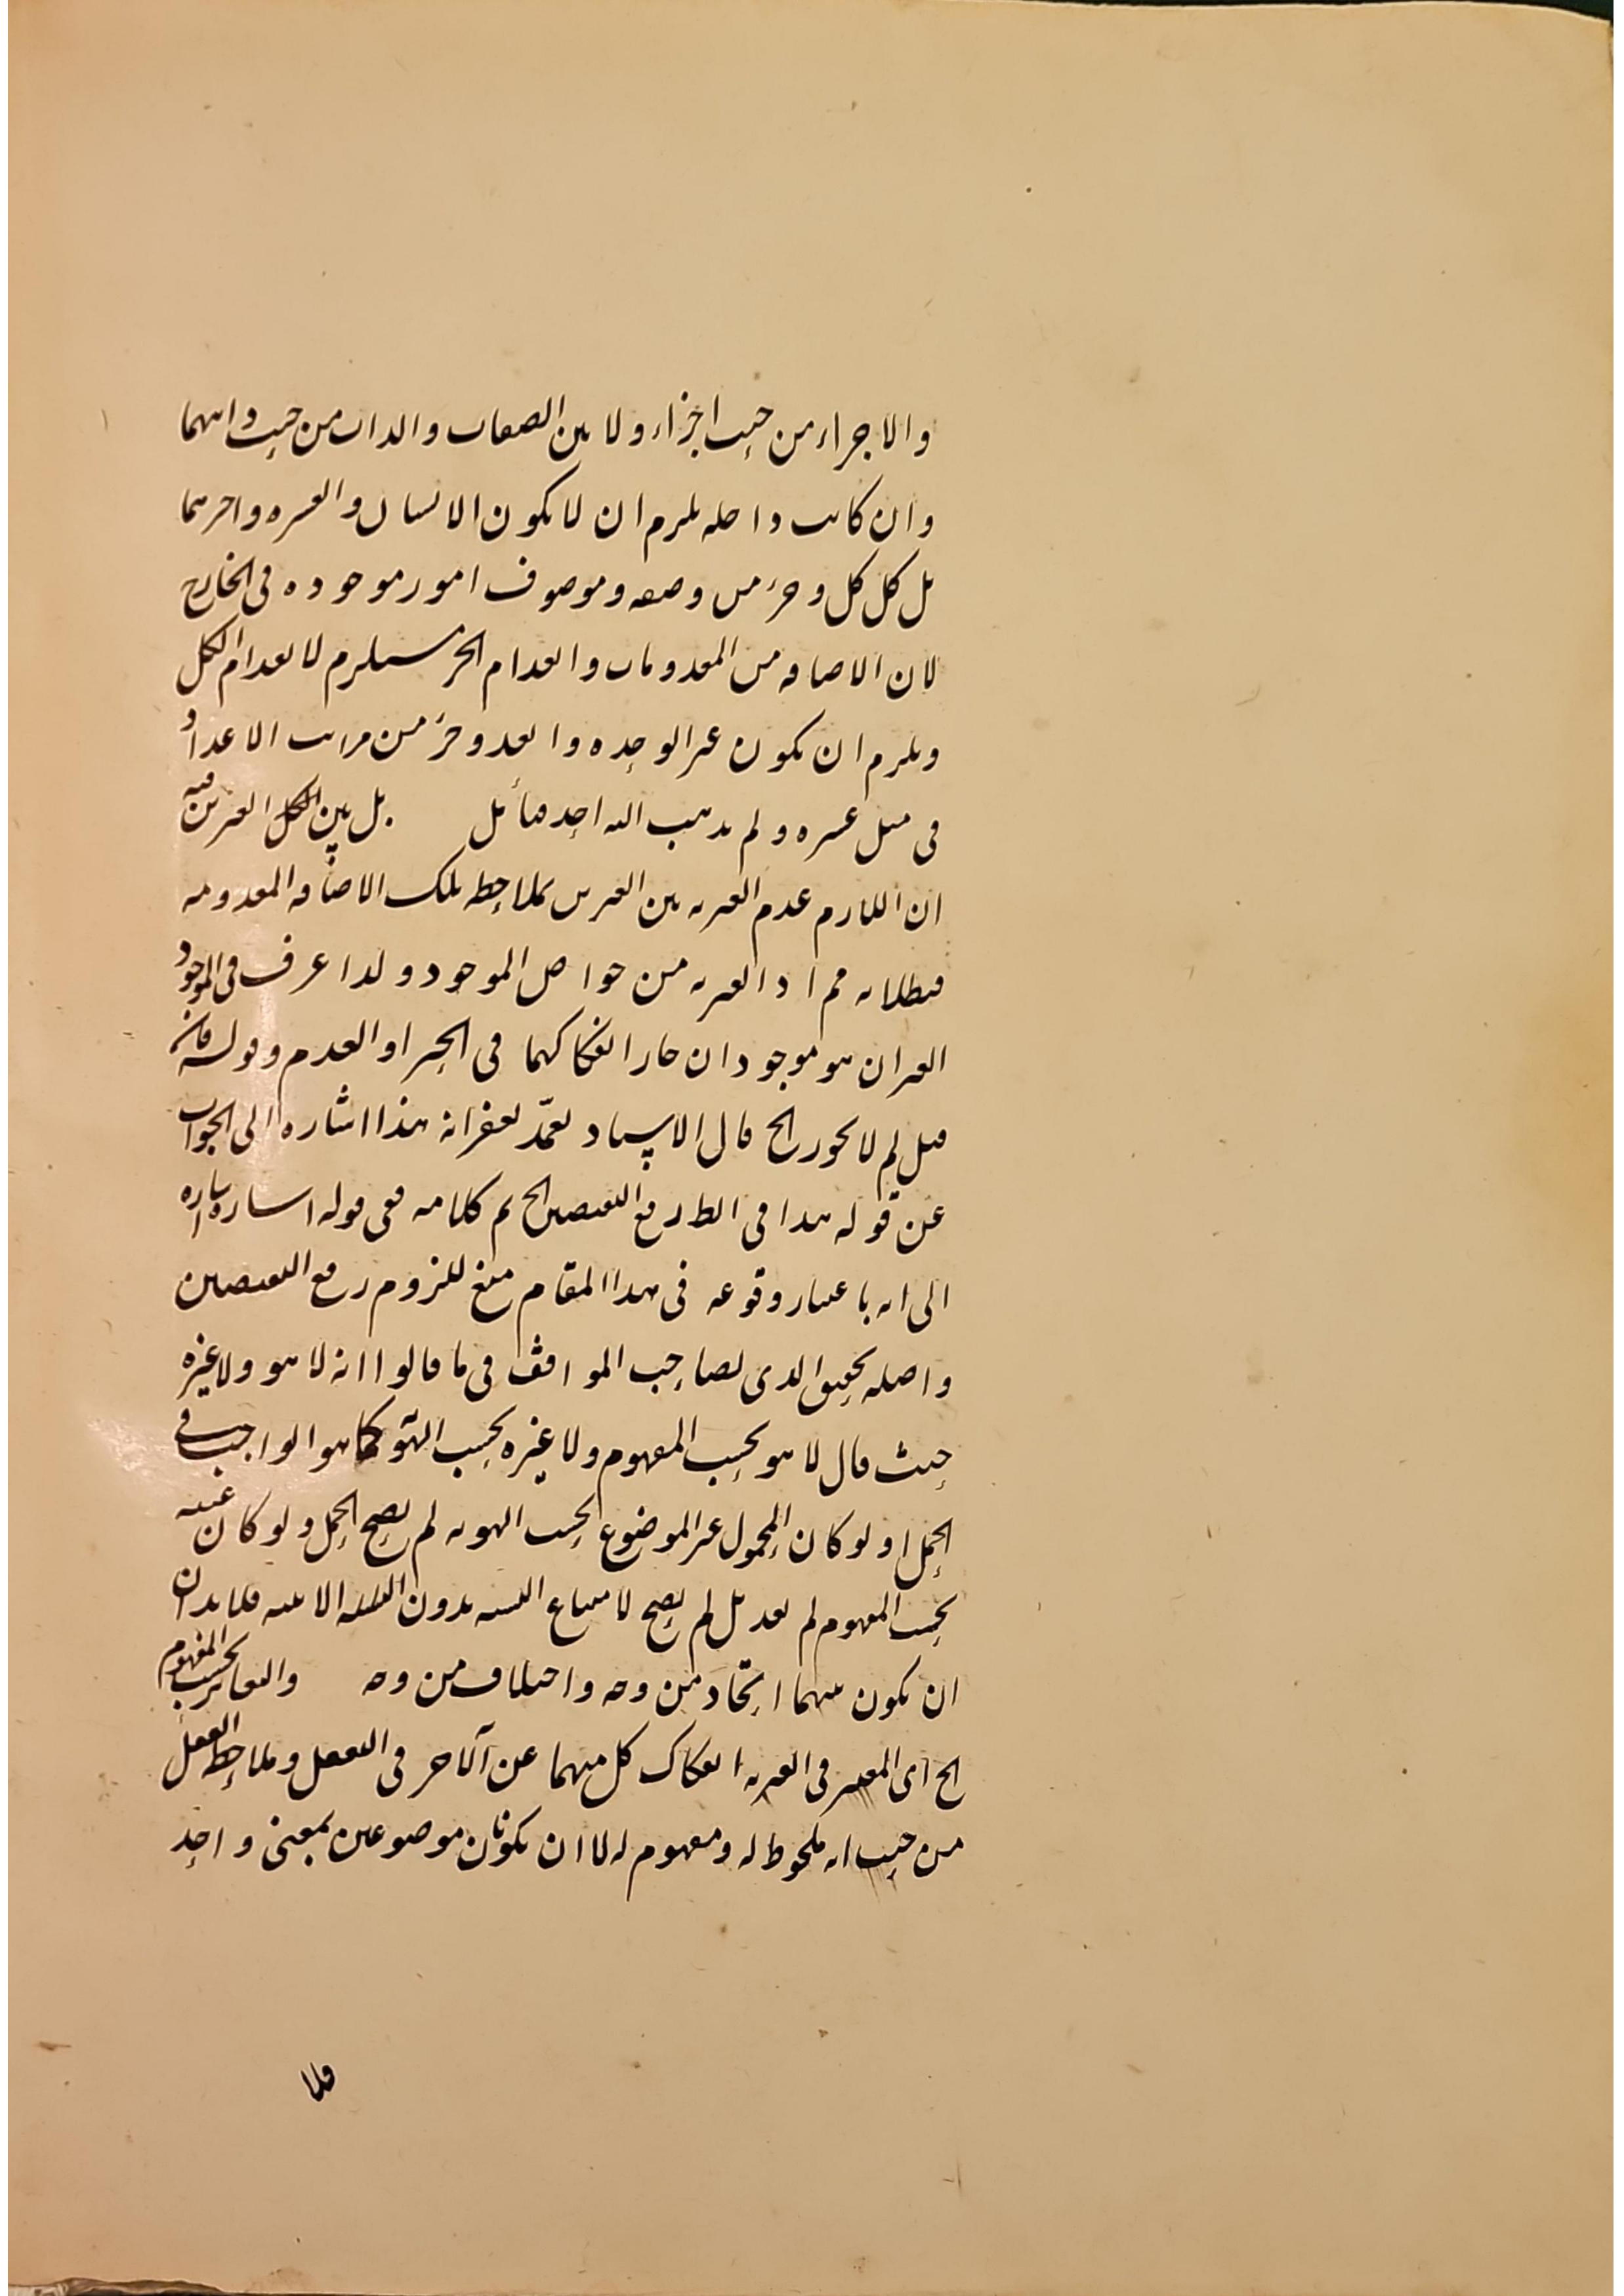 والاجزاء من حيث اجزاء ولا بين الصفات والذات من حيث ذاتهما
وان كانت داخله يلزم ان لا يكون الانسان والعشره واخرهما
بل كل كل وجزء من وصفه وموصوف امور موجوده فى الخارج
لان الاضافه من المعدومات وانعدام الجزء يستلزم لانعدام الكل
ويلزم ان يكون غير الوحده والعدد جزء من مراتب الاعداد
فى مثل عشره ولم يذهب اليه احد فتأمل بل بين الكل الغيرين فيه
ان اللازم عدم الغيريه بين الغيرين بملاحظه تلك الاضافه المعدومه
فبطلانه مم اذ الغيريه من خواص الموجود ولذا عرف فى الموجود
الغيران هو موجودان جاز انفكاكهما فى الحيز او العدم وقوله فان
قيل لم لا يجوز الخ قال الاستاد تغمد بغفرانه هذا اشاره الى الجواب
عن قوله هذا فى الظ رفع النقيضين الخ تم كلامه ففى قوله اشاره اشاره
الى انه باعتبار وقوعه فى هذا المقام منع للزوم رفع النقيضين
واصله تحقيق الذى لصاحب المواقف فى ما قالوا انه لا هو ولا غيره
حيث قال لا هو بحسب المفهوم ولا غيره بحسب الهو كما هو الواجب فى
الحمل اذ لو كان المحمول غير الموضوع بحسب الهويه لم يصح الحمل ولو كان عينه
بحسب المفهوم لم يفد بل لم يصح لامتناع النسبه بدون الاثنينيه فلا بد ان
ان يكون بينهما اتحاد من وجه واختلاف من وجه والتغاير بحسب المفهوم
الخ اى المعتبر فى الغيريه انفكاك كل منهما عن الآخر فى التعقل وملاحظه العقل
من حيث انه ملحوظ له ومفهوم له لا ان يكونان موضوعين بمعنى واحد
فلا